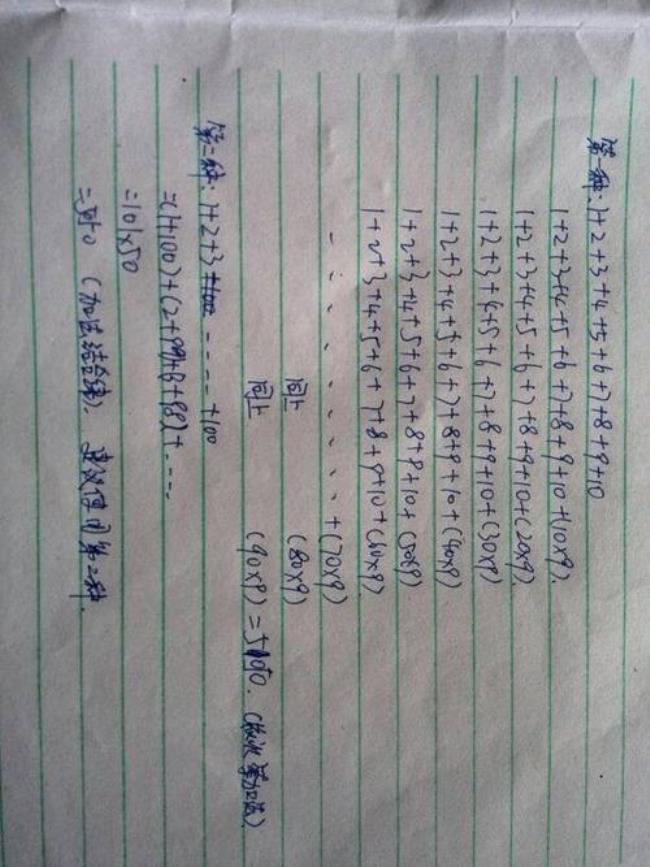 第一种: 1+2+3+4+5+6+7+8+9+10
1+2+3+4+5+6+7+8+9+10+(10×9).
1+2+3+4+5+6+7+8+9+10+(20×9).
1+2+3+4+5+6+7+8+9+10+(30×9)
1+2+3+4+5+6+7+8+9+10+(40×9)
1+2+3+4+5+6+7+8+9+10+(50×9)
1+2+3+4+5+6+7+8+9+10+(60×9)
+(70×9)
同上 (80×9)
同上 (90×9)=5050.
第二种: 1+2+3 ---- +100
=(1+100)+(2+99)+(3+98)+----
=101×50
=5050 (加法结合律). 建议使用第二种.